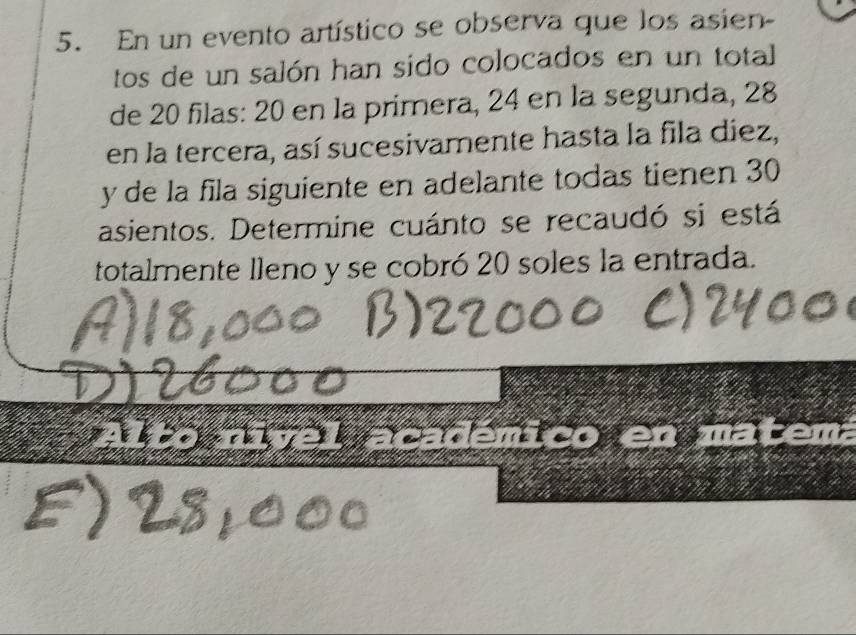 5. En un evento artístico se observa que los asien-
tos de un salón han sido colocados en un total
de 20 filas: 20 en la primera, 24 en la segunda, 28
en la tercera, así sucesivamente hasta la fila diez,
y de la fila siguiente en adelante todas tienen 30
asientos. Determine cuánto se recaudó si está
totalmente lleno y se cobró 20 soles la entrada.
A) 18,000 B) 22000 C) 24000
D) 26000
Alto nivel académico en matemá
E) 28,000